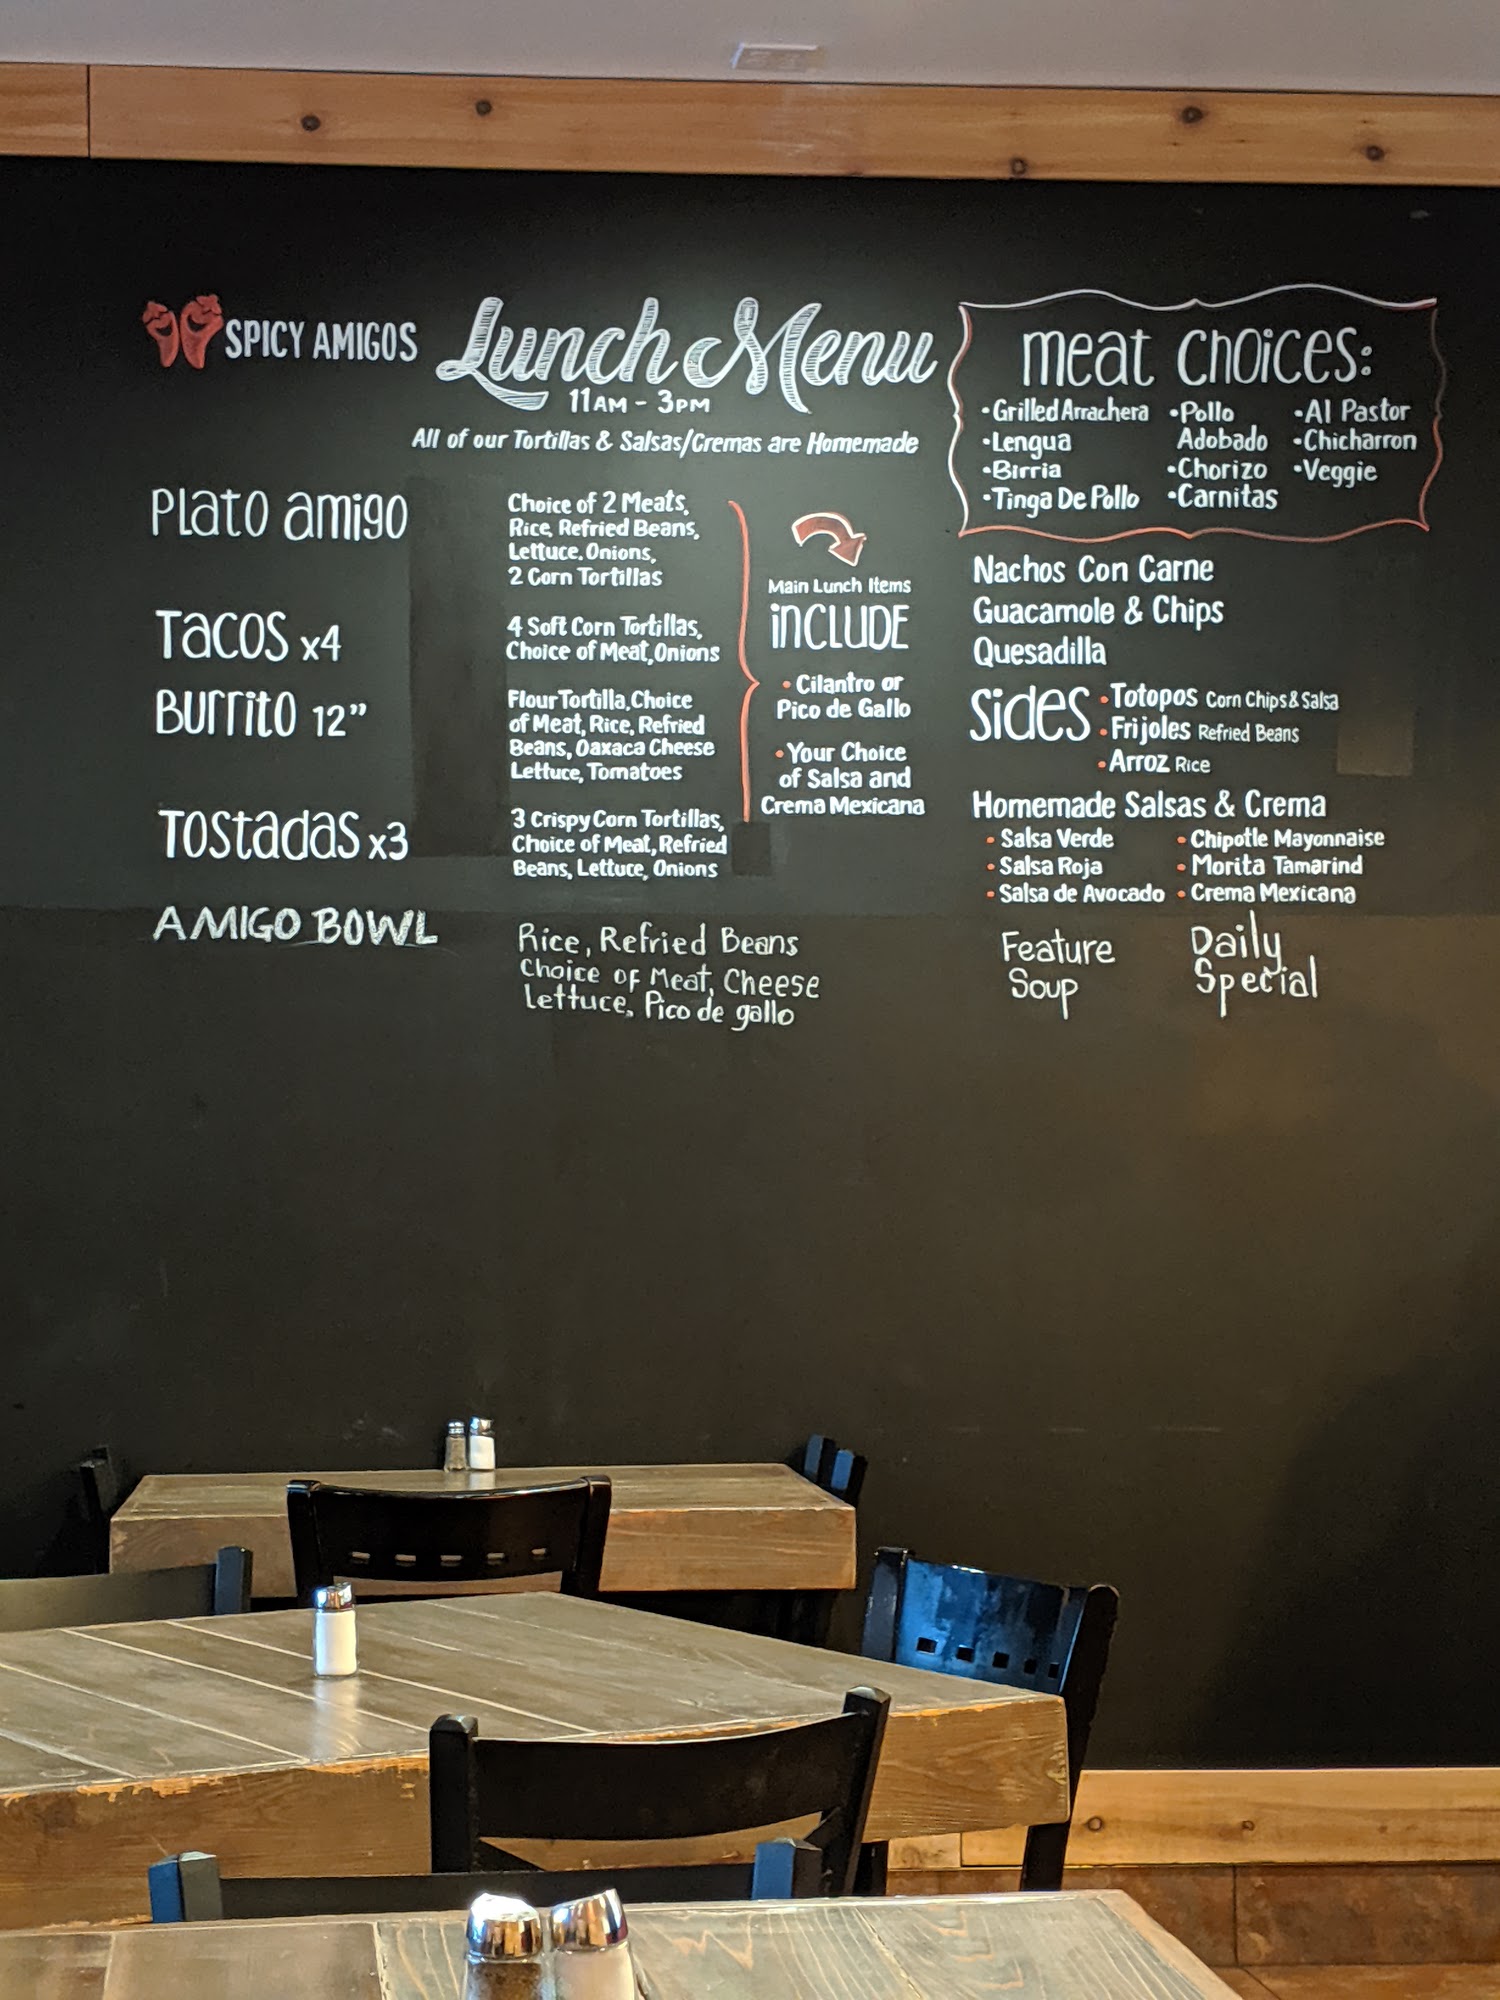 SPICY AMIGOS
Lunch Menu
11AM - 3PM
All of our Tortillas & Salsas/Cremas are Homemade
Plato amigo
Choice of 2 Meats,
Rice, Refried Beans,
Lettuce, Onions,
2 Corn Tortillas
Tacos x4
4 Soft Corn Tortillas,
Choice of Meat, Onions
Burrito 12"
Flour Tortilla, Choice
of Meat, Rice, Refried
Beans, Oaxaca Cheese
Lettuce, Tomatoes
Tostadas x3
3 Crispy Corn Tortillas,
Choice of Meat, Refried
Beans, Lettuce, Onions
AMIGO BOWL
Rice, Refried Beans
Choice of Meat, Cheese
Lettuce, Pico de gallo
Main Lunch Items
iNCLUDE
• Cilantro or
Pico de Gallo
• Your Choice
of Salsa and
Crema Mexicana
meat choices:
• Grilled Arrachera
• Lengua
• Birria
• Tinga De Pollo
• Pollo
Adobado
• Chorizo
• Carnitas
• Al Pastor
• Chicharron
• Veggie
Nachos Con Carne
Guacamole & Chips
Quesadilla
Sides
• Totopos Corn Chips & Salsa
• Frijoles Refried Beans
• Arroz Rice
Homemade Salsas & Crema
• Salsa Verde
• Salsa Roja
• Salsa de Avocado
• Chipotle Mayonnaise
• Morita Tamarind
• Crema Mexicana
Feature
Soup
Daily
Special